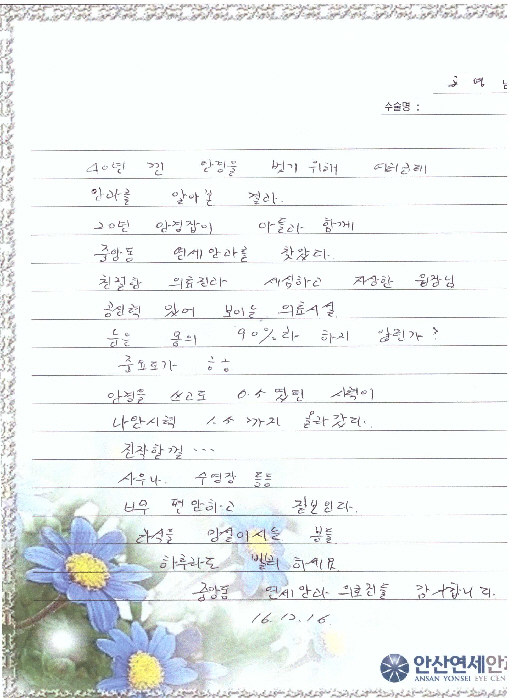 수술명 :
40년 낀 안경을 벗기 위해 여러군데
안과를 알아본 결과.
20년 안경잡이 아들과 함께
중앙동 연세안과를 찾았다.
친절한 의료진과 세심하고 자상한 원장님
공신력 있어 보이는 의료시설.
눈은 몸의 90%라 하지 않는가?
안경을 쓰고도 0.5 였던 시력이
나안시력 1.5 까지 올라갔다.
진작할껄 ...
사우나. 수영장 등등
너무 편안하고 굳보입니다.
라식을 망설이시는 분들
하루라도 빨리 하세요
중앙동 연세안과 의료진들 감사합니다.
16.12.16
안산연세안과
ANSAN YONSEI EYE CEN